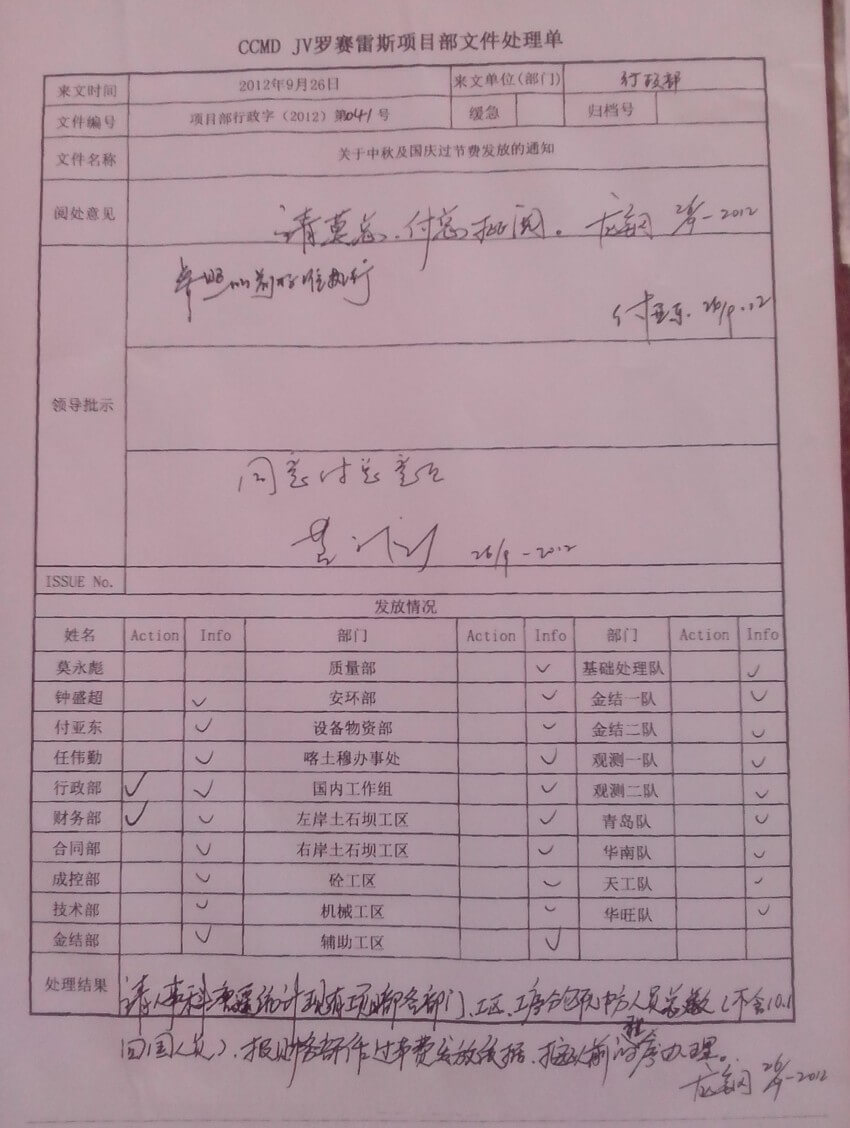 CCMD JV罗赛雷斯项目部文件处理单
来文时间 2012年9月26日 来文单位(部门) 行政部
文件编号 项目部行政字(2012)第041号 缓急 归档号
文件名称 关于中秋及国庆过节费发放的通知
阅处意见 请莫总、付总批阅。 26/9-2012
领导批示
参照以前标准执行
付亚东 26/9.12
同意付总意见
26/9-2012
ISSUE No.
发放情况
姓名 Action Info 部门 Action Info 部门 Action Info
莫永彪 质量部 ✓ 基础处理队 ✓
钟盛超 ✓ 安环部 ✓ 金结一队 ✓
付亚东 ✓ 设备物资部 ✓ 金结二队 ✓
任伟勤 ✓ 喀土穆办事处 ✓ 观测一队 ✓
行政部 ✓ ✓ 国内工作组 ✓ 观测二队 ✓
财务部 ✓ ✓ 左岸土石坝工区 ✓ 青岛队 ✓
合同部 ✓ 右岸土石坝工区 ✓ 华南队 ✓
成控部 ✓ 砼工区 ✓ 天工队 ✓
技术部 ✓ 机械工区 ✓ 华旺队 ✓
金结部 ✓ 辅助工区 ✓
处理结果 请人事科 统计现有项目部各部门、工区、 中方人员总数(不含10.1
回国人员)、报财务部作过节费发放依据、按以前 标准办理。
26/9-2012